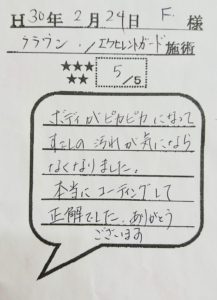 H30年2月24日 F. 様
クラウン . /エクセレントガード 施術
★★★
★★ 5/5
ボディがピカピカになって
すこしの汚れが気になら
なくなりました。
本当にコーティングして
正解でした。ありがとう
ございます